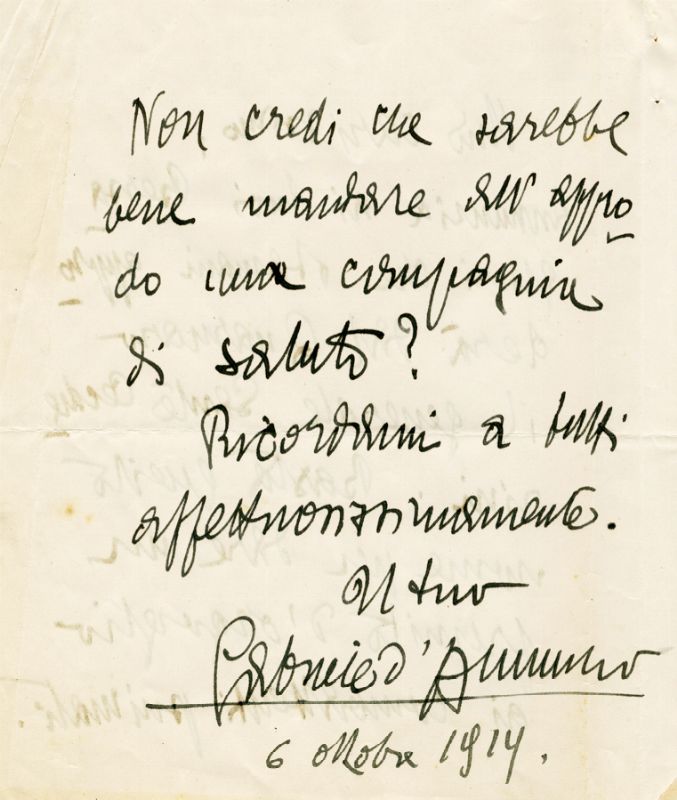 Non credi che sarebbe
bene mandare all'appro
do una compagnia
di saluto?
Ricordami a tutti
affettuosissimamente.
Il tuo
Gabriele d'Annunzio
6 ottobre 1919.